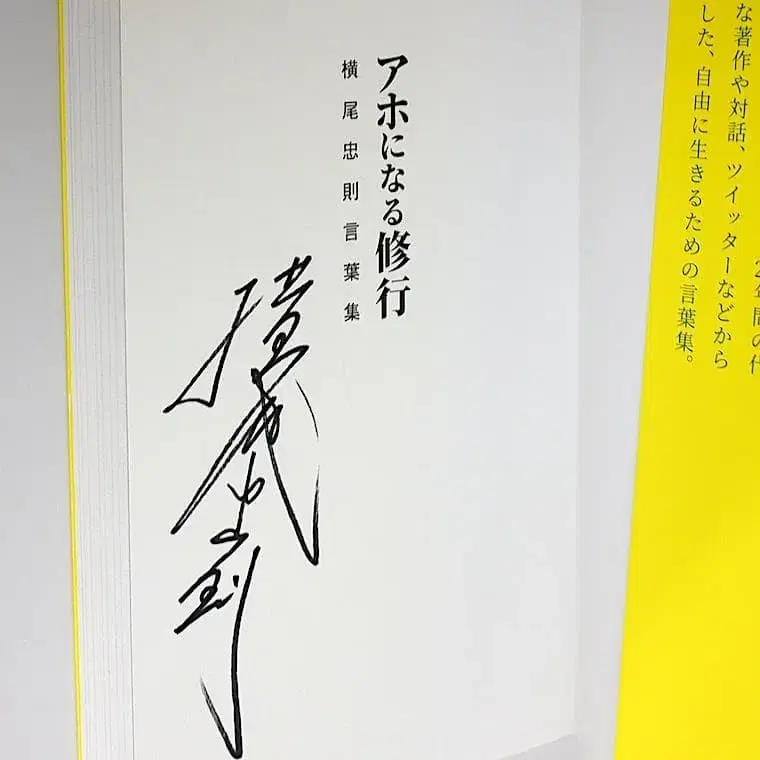 な著作や対話、ツイッターなどから
した、自由に生きるための言葉集。
アホになる修行
横尾忠則言葉集
横尾忠則